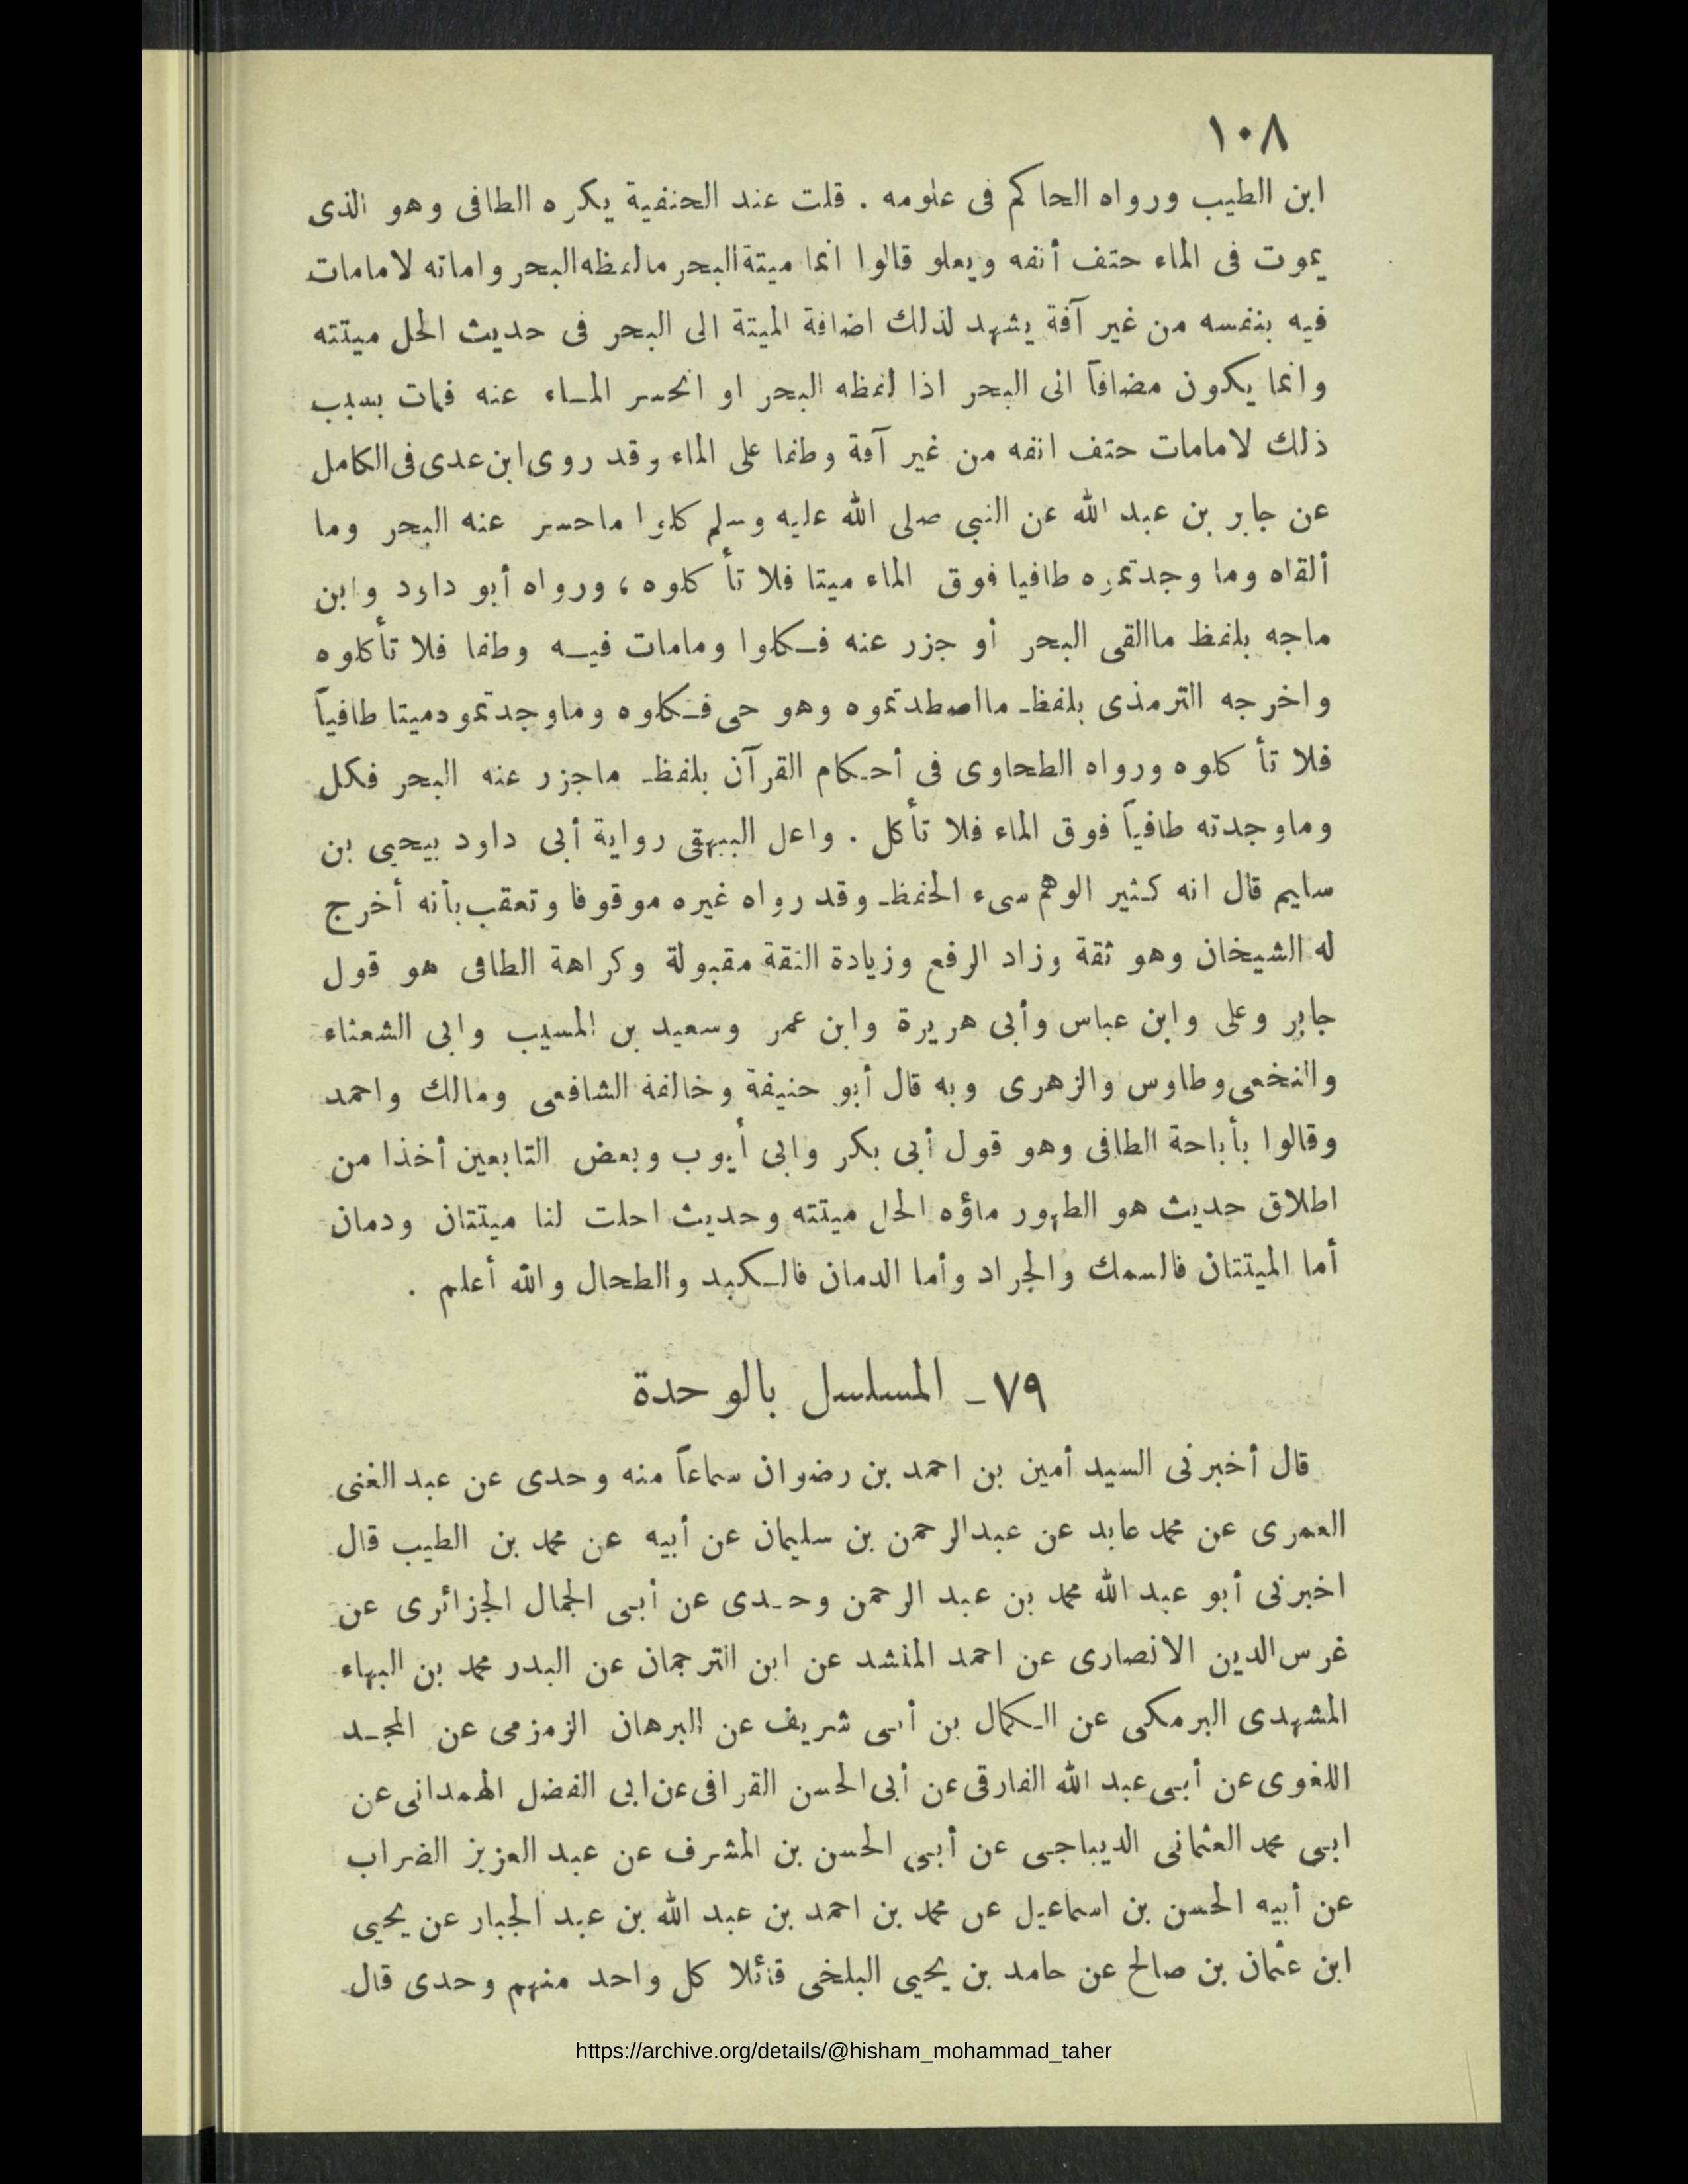 ١٠٨
ابن الطيب ورواه الحاكم فى علومه . قلت عند الحنفية يكره الطافى وهو الذى
يموت فى الماء حتف أنفه ويعلو قالوا انما ميتة البحر مالفظه البحر واماته لامامات
فيه بنفسه من غير آفة يشهد لذلك اضافة الميتة الى البحر فى حديث الحل ميتته
وانما يكون مضافاً الى البحر اذا لفظه البحر او انحسر المـاء عنه فمات بسبب
ذلك لامامات حتف انفه من غير آفة وطفا على الماء وقد روى ابن عدى فى الكامل
عن جابر بن عبد الله عن النبي صلى الله عليه وسلم كلوا ماحسر عنه البحر وما
ألقاه وما وجدتموه طافيا فوق الماء ميتا فلا تأكلوه ، ورواه أبو داود وابن
ماجه بلفظ ماالقى البحر أو جزر عنه فـكلوا ومامات فيـه وطفا فلا تأكلوه
واخرجه الترمذى بلفظ مااصطدتموه وهو حى فـكلوه وماوجدتموه ميتا طافياً
فلا تأكلوه ورواه الطحاوى فى أحـكام القرآن بلفظ ماجزر عنه البحر فكل
وماوجدته طافياً فوق الماء فلا تأكل . واعل البيهقى رواية أبى داود بيحيى بن
سليم قال انه كثير الوهم سىء الحفظ وقد رواه غيره موقوفا وتعقب بأنه أخرج
له الشيخان وهو ثقة وزاد الرفع وزيادة الثقة مقبولة وكراهة الطافى هو قول
جابر وعلى وابن عباس وأبى هريرة وابن عمر وسعيد بن المسيب وابى الشعثاء
والنخعى وطاوس والزهرى وبه قال أبو حنيفة وخالفه الشافعى ومالك واحمد
وقالوا بأباحة الطافى وهو قول أبى بكر وابى أيوب وبعض التابعين أخذا من
اطلاق حديث هو الطهور ماؤه الحل ميتته وحديث احلت لنا ميتتان ودمان
أما الميتتان فالسمك والجراد وأما الدمان فالـكبد والطحال والله أعلم .
٧٩ـ المسلسل بالوحدة
قال أخبرنى السيد أمين بن احمد بن رضوان سماعاً منه وحدى عن عبد الغنى
العمرى عن محمد عابد عن عبدالرحمن بن سليمان عن أبيه عن محمد بن الطيب قال
اخبرنى أبو عبد الله محمد بن عبد الرحمن وحـدى عن أبى الجمال الجزائرى عن
غرس الدين الانصارى عن احمد المنشد عن ابن الترجمان عن البدر محمد بن البهاء
المشهدى البرمكى عن الـكمال بن أبى شريف عن البرهان الزمزمى عن المجـد
اللغوى عن أبى عبد الله الفارقى عن أبى الحسن القرافى عن ابى الفضل الهمدانى عن
ابى محمد العثمانى الديباجى عن أبى الحسن بن المشرف عن عبد العزيز الضراب
عن أبيه الحسن بن اسماعيل عن محمد بن احمد بن عبد الله بن عبد الجبار عن يحيى
ابن عثمان بن صالح عن حامد بن يحيى البلخى قائلا كل واحد منهم وحدى قال
https://archive.org/details/@hisham_mohammad_taher